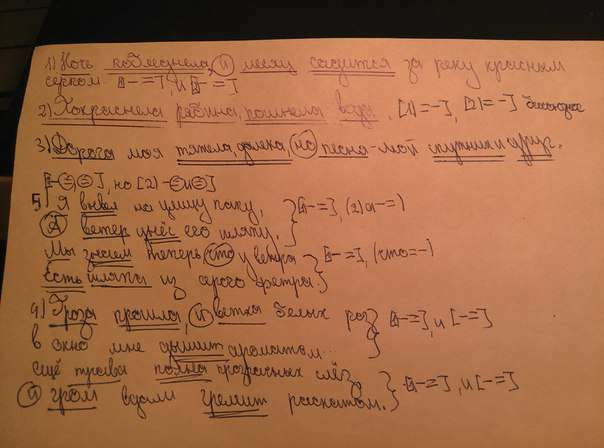 1) Ночь побледнела, и месяц садится за реку красным
серпом. [1 - =], и [2 - =]
2) Покраснела рябина, посинела вода. [1 = -], [2 = -] бессоюзное
3) Дорога моя тяжела, далека, но песня - мой спутник и друг.
[1 - = =], но [2) - = и =]
5) Я вывел на улицу папу, } [1 - =], (2) а - =)
А ветер унёс его шляпу. }
Мы знаем теперь что у ветра } [1 - =], (что = -)
Есть шляпы из серого фетра. }
4) Гроза прошла, и ветка белых роз } [1 - =], и [- =]
в окно мне дышит ароматом... }
ещё трава полна прозрачных слёз, } [1 - =], и [- =]
и гром вдали гремит раскатом. }